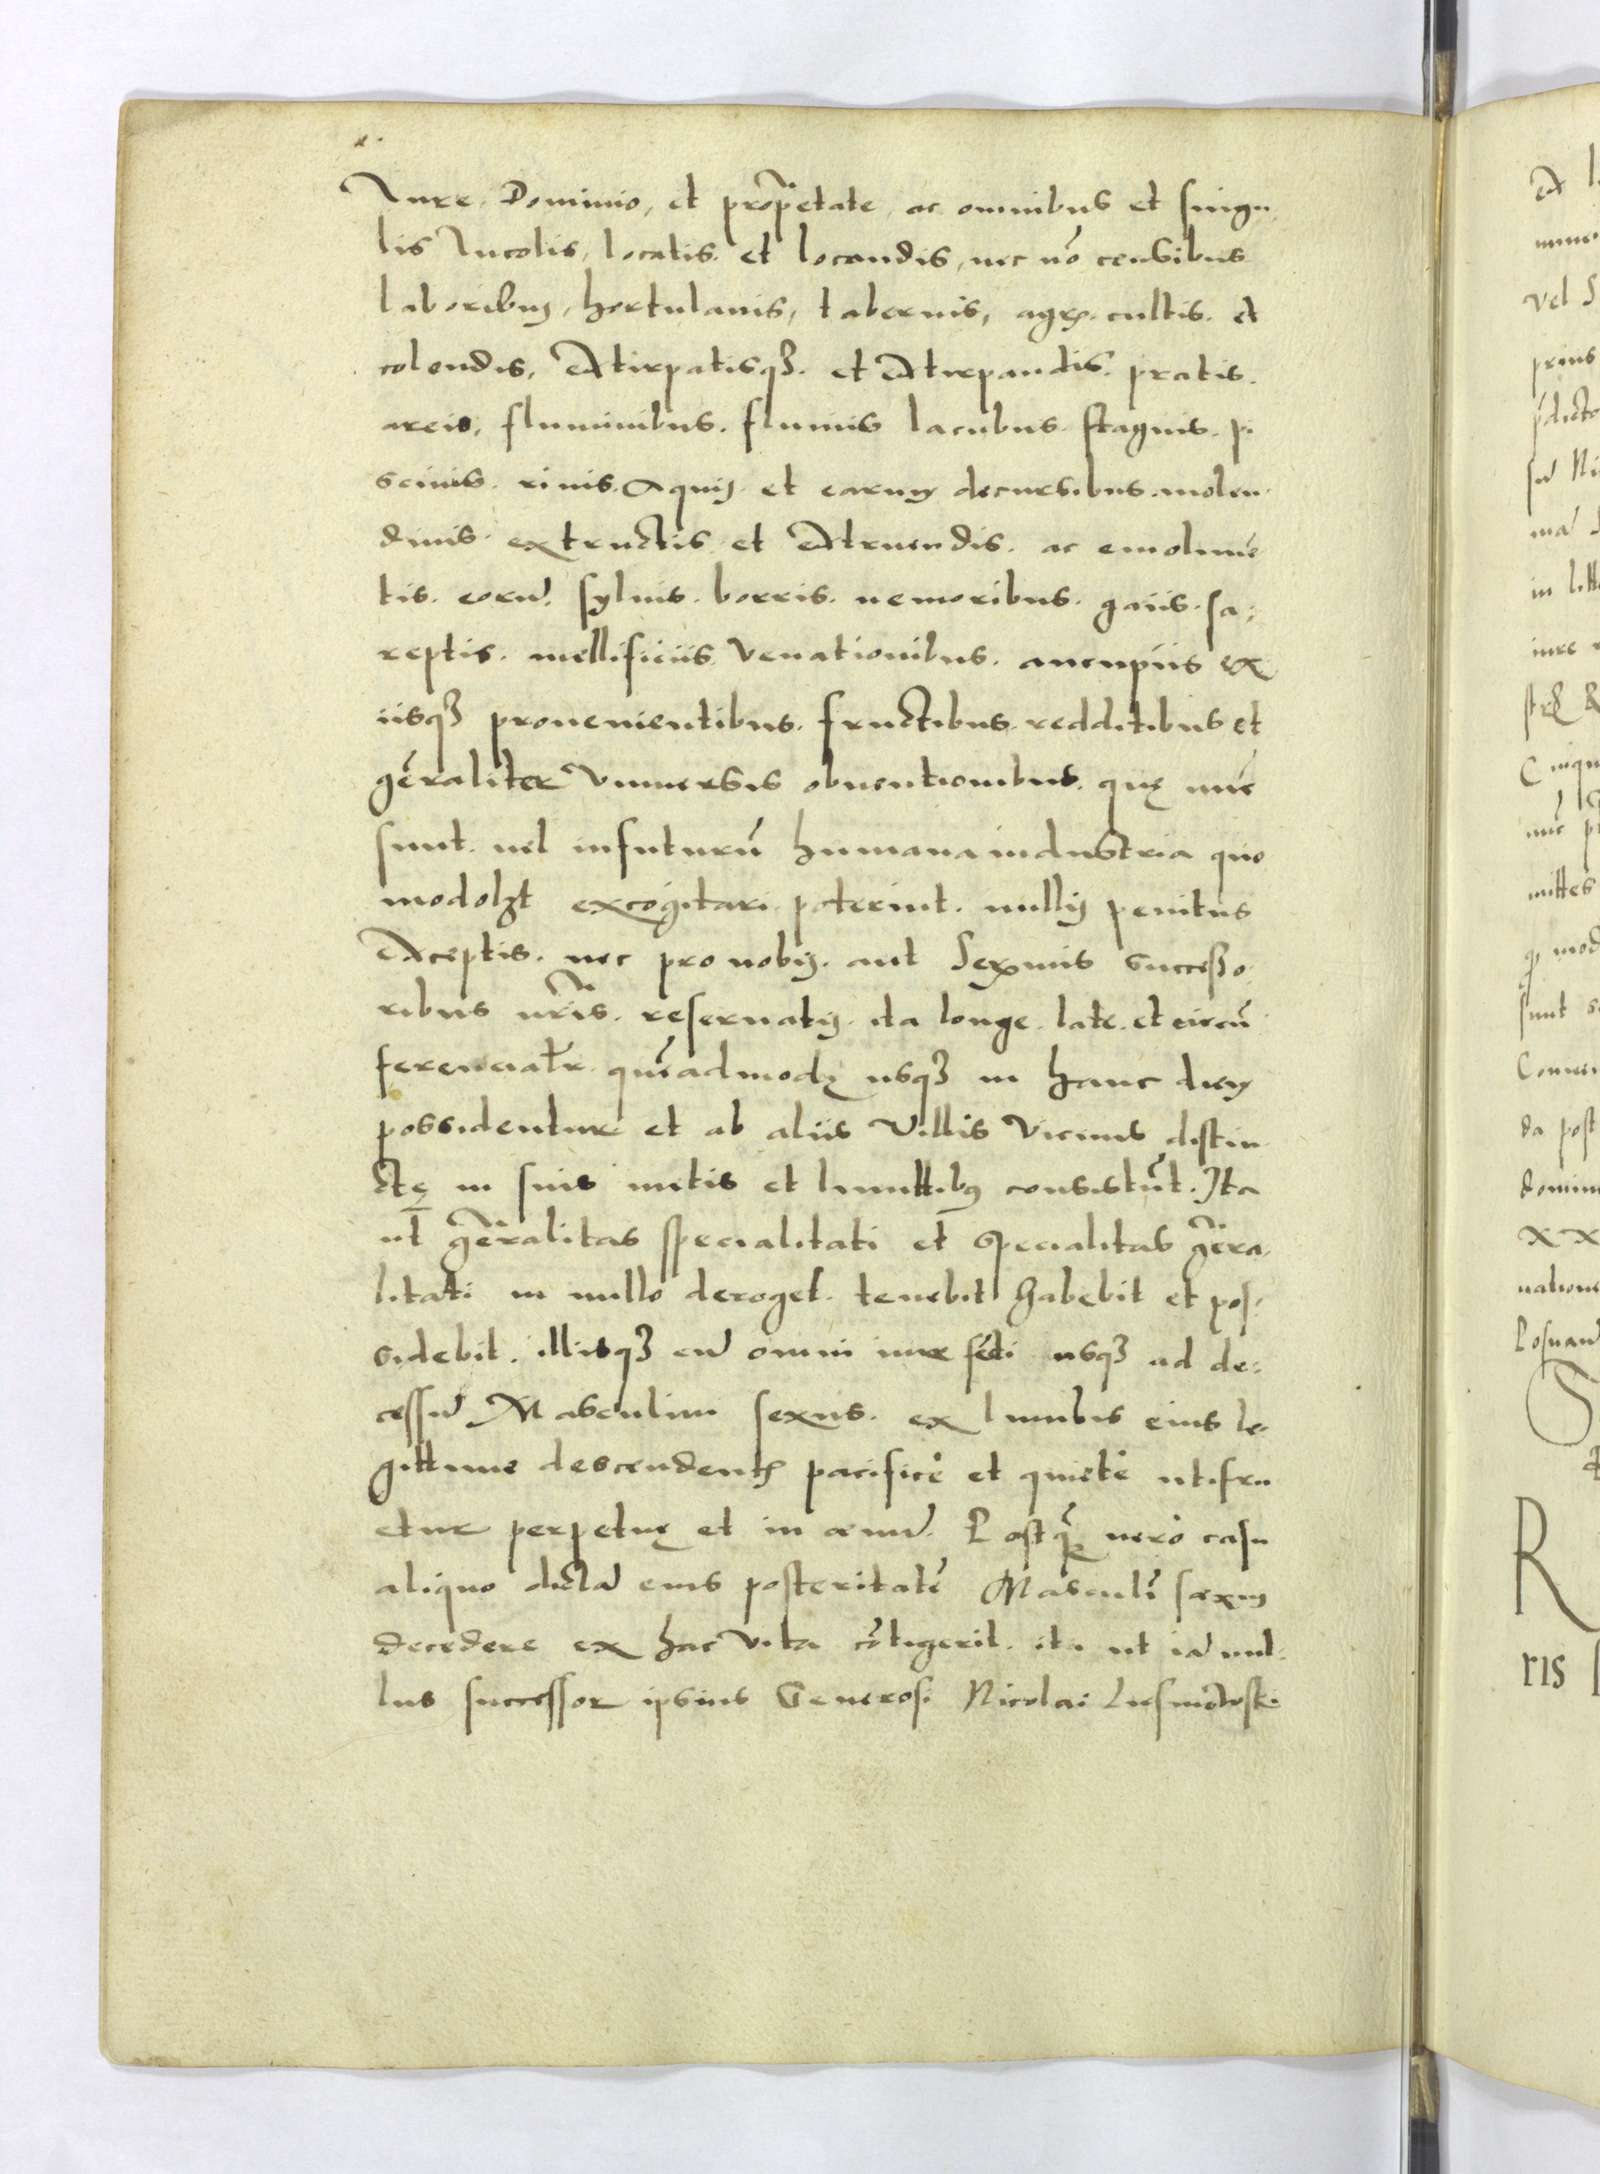 Iure. Dominio, et prop̃etate, ac omnibus et singu
lis Incolis, locatis. et locandis, nec nõ censibus
laboribus, hortulanis, tabernis, agr. cultis. et
colendis, Extirpatisqꝫ. et Extirpandis. pratis.
areis, fluminibus. fluuiis lacubus. stagnis. pi
scinis. riuis. Aquis et earum decursibus. molen
dinis extructis et Extruendis. ac emolumẽ
tis. eorũ. syluis. borris. nemoribus. gaiis. sa-
reptis. mellificiis Venationibus. aucupiis ex
iisqꝫ prouenientibus. fructibus. redditibus et
gñeraliter Vniuersis obuentionibus. quę nũc
sunt. uel in futurũ humana industria quo
modolꝫt excogitari poterint. nullis penitus
Exceptis. nec pro nobis. aut Sermis Successo
ribus nr̃is. reseruatis. ita longe. late. et circũ
ferencialr̃. quẽadmodũ usqꝫ in hanc diem
possidentur et ab aliis Villis Vicinis distin
ctę in suis metis et limittibus consistũt. Ita
ut gñeralitas specialitati et specialitas gñera-
litati in nullo deroget. tenebit habebit et pos-
sidebit. illisqꝫ cũ omni iure feudi usqꝫ ad de-
cessũ Masculini sexus. ex lumbis eius le-
gittime descendentis pacificè et quietè utifru
etur perpetuę et in æuũ. Postqũ uerò casu
aliquo dictã eius posteritatẽ Masculĩ sexus
decedere ex hac Vita cõtigerit. ita ut iã nul-
lus successor ipsius Generosi Nicolai
et
vel S
prius
in litt
iure
Cinqu
nũc pr
mittes
mod
sunt
Conuen
da post
domin
XX
uatione
S
R
ris